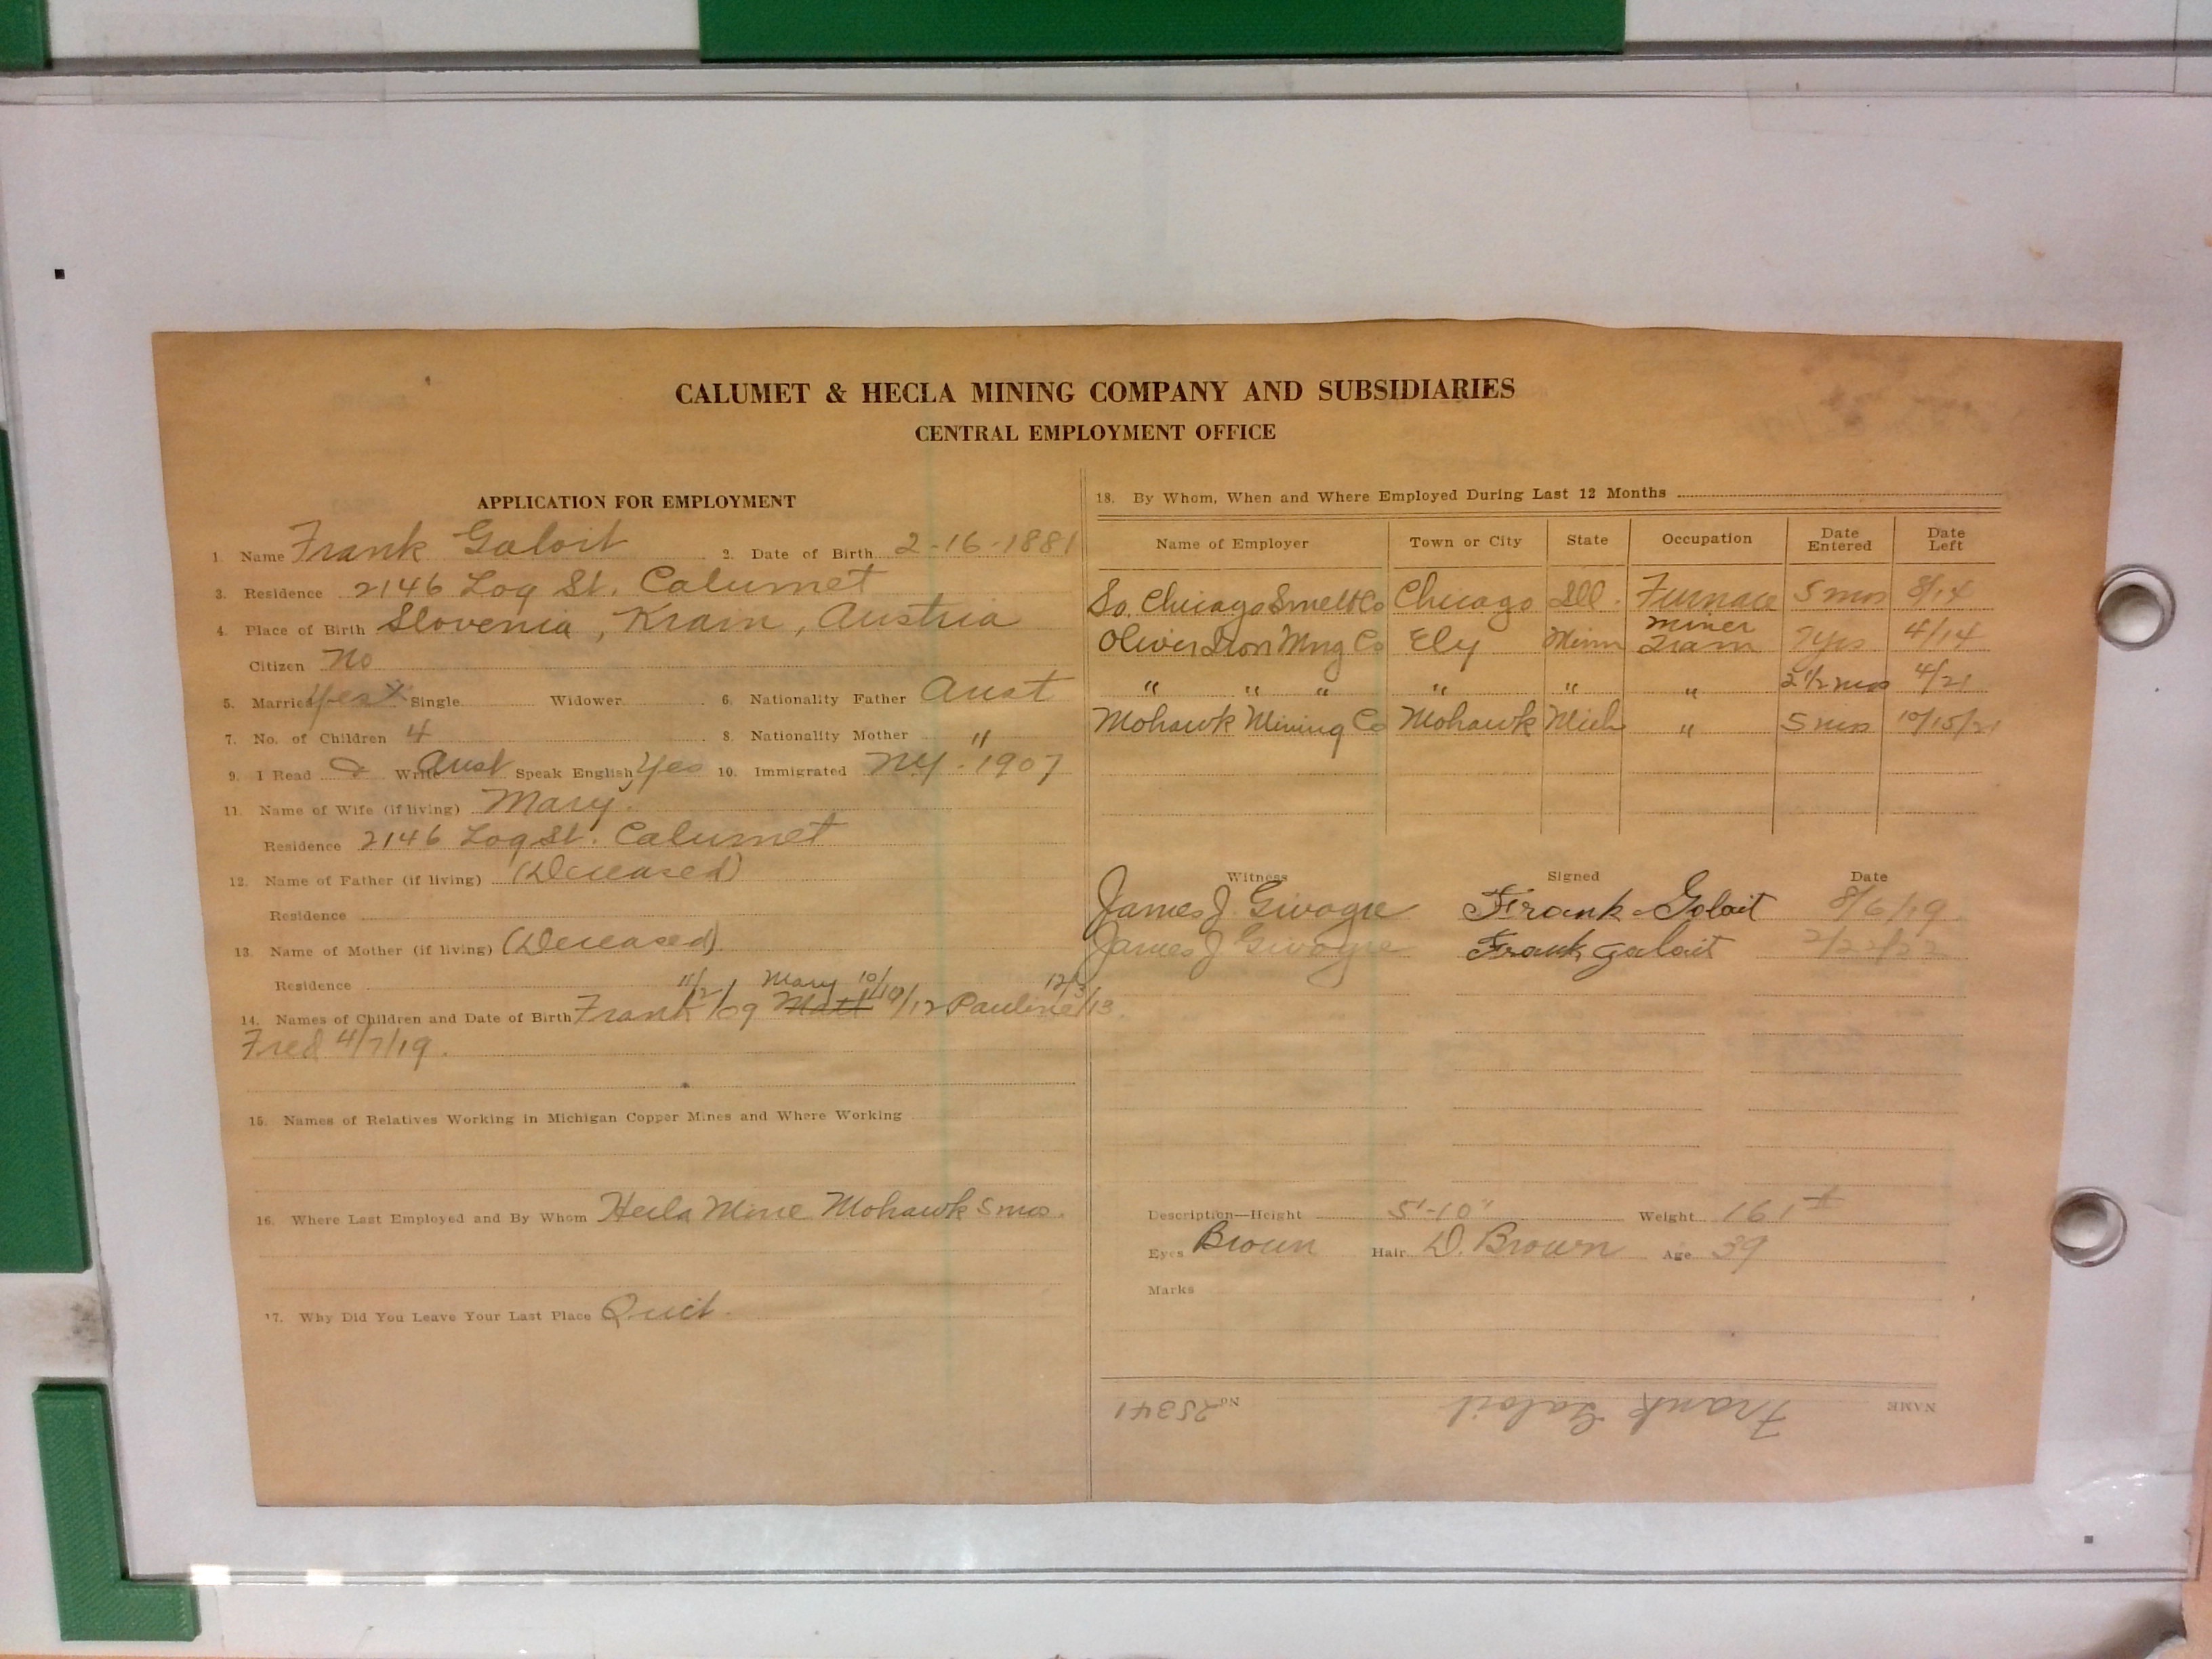 CALUMET & HECLA MINING COMPANY AND SUBSIDIARIES
CENTRAL EMPLOYMENT OFFICE
APPLICATION FOR EMPLOYMENT
1. Name Frank Galoit 2. Date of Birth 2-16-1881
3. Residence 2146 Log St. Calumet
4. Place of Birth Slovenia, Krain, Austria
Citizen No
5. Married yes x Single Widower 6. Nationality Father Aust
7. No. of Children 4 8. Nationality Mother "
9. I Read Write Aust Speak English Yes 10. Immigrated NY. 1907
11. Name of Wife (if living) Mary
Residence 2146 Log St. Calumet
12. Name of Father (if living) (Deceased)
Residence
13. Name of Mother (if living) (Deceased)
Residence
14. Names of Children and Date of Birth Frank 11/2/09 Mary 10/10/12 Pauline 12/3/13.
Fred 4/7/19.
15. Names of Relatives Working in Michigan Copper Mines and Where Working
16. Where Last Employed and By Whom Hecla Mine Mohawk 5 mos.
17. Why Did You Leave Your Last Place Quit.
18. By Whom, When and Where Employed During Last 12 Months
Name of Employer Town or City State Occupation Date Entered Date Left
So. Chicago Smelt Co Chicago Ill. Furnace 5 mos 8/14
Oliver Iron Mng Co Ely Minn Miner Tram 7 yrs 4/14
" " " " " " 2 1/2 mos 4/21
Mohawk Mining Co Mohawk Mich " 5 mos 10/15/21
Witness Signed Date
James J. Givogre Frank Golait 8/6/19.
James J Givogre Frank galait 2/22/22
Description—Height 5'-10" Weight 161 #
Eyes Brown Hair D. Brown Age 39
Marks
NAME Frank Galoit No. 25341